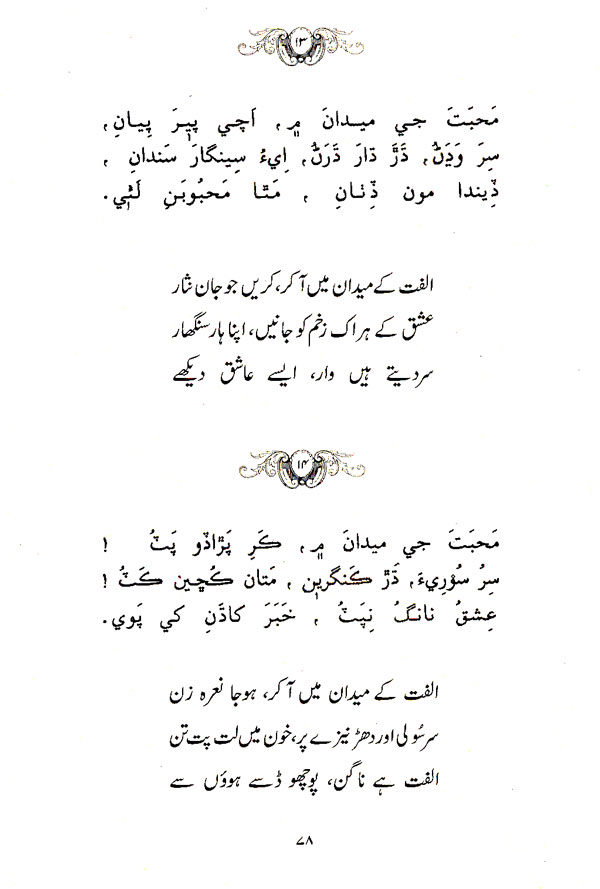 ۱۳
مَحبَتَ جي ميدانَ ۾، اَچي پيرَ پِيانِ،
سِرَ وَڍَنُ، ڌَڙَ ڌارَ ڌَرَنُ، اِيءُ سِينگارَ سَندانِ ،
ڏِيندا مون ڏِٺانِ ، مَٿا مَحبُوبَنِ لَئٖي.
الفت کے میدان میں آ کر، کریں جو جان نثار
عشق کے ہر اک زخم کو جانیں، اپنا ہار سنگھار
سر دیتے ہیں وار، ایسے عاشق دیکھے
۱۴
مَحبَتَ جي ميدانَ ۾، ڪَرِ پَڙاڏو پَٽُ !
سِرُ سُوۡرِيءَ، ڌَڙُ ڪَنگرين، مَتان ڪُڇين ڪَٽُ !
عِشقُ نانگُ نِپَٽُ ، خَبَرَ کاڌَنِ کي پَوي.
الفت کے میدان میں آ کر، ہو جا نعرہ زن
سر سُولی اور دھڑ نیزے پر، خون میں لت پت تن
الفت ہے ناگن، پوچھو ڈسے ہوؤں سے
۷۸